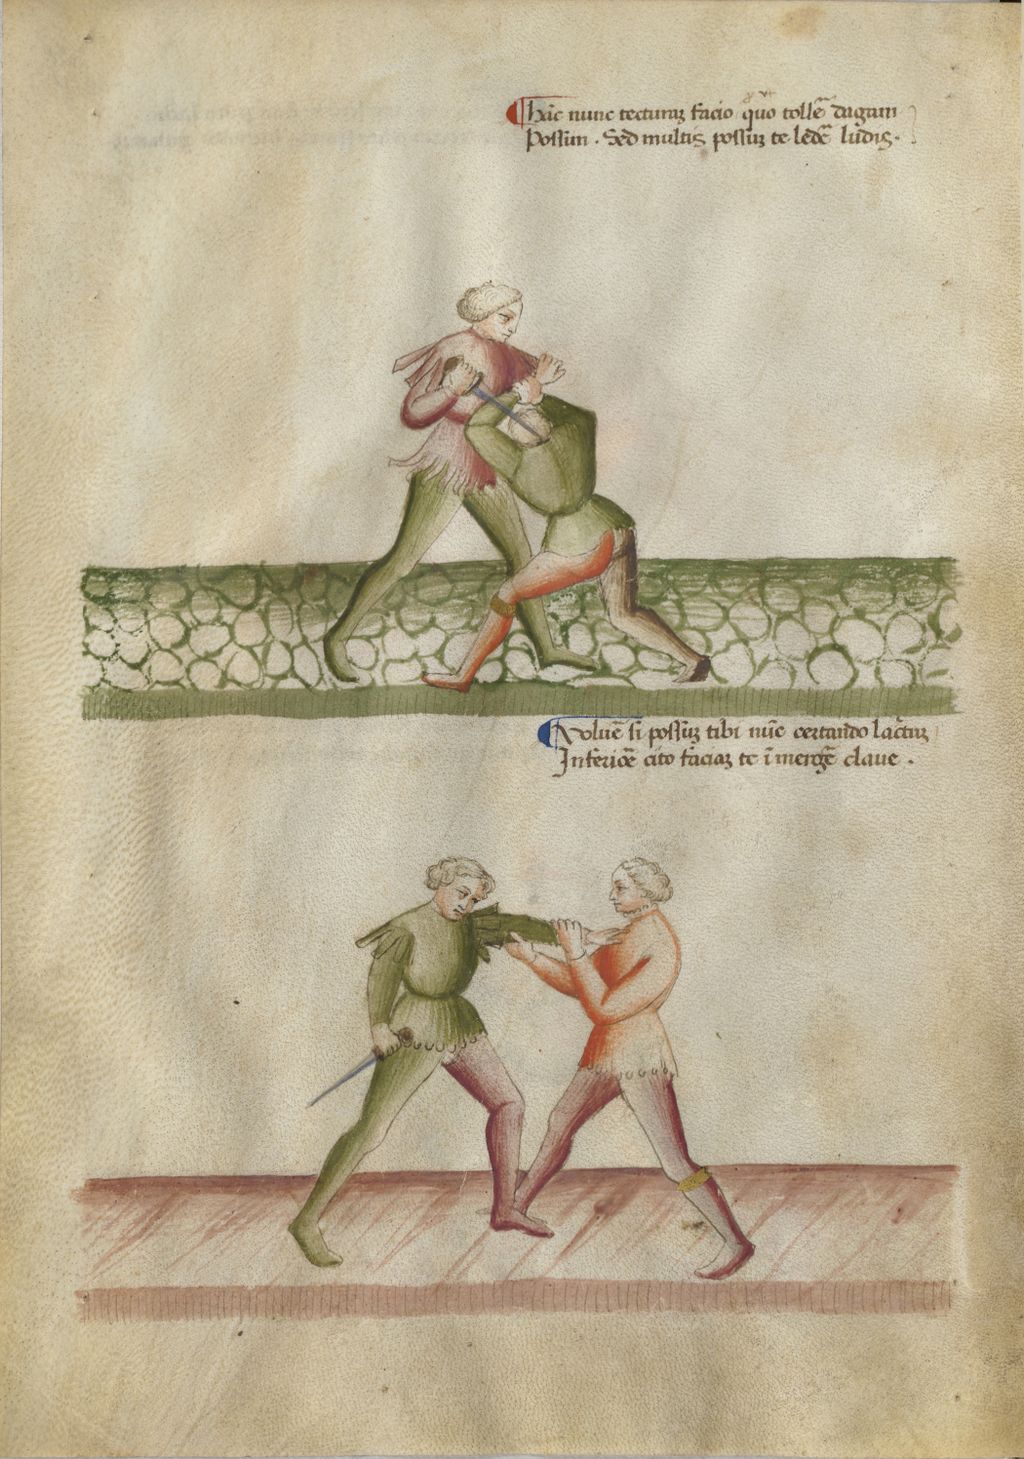 Hãc nunc tecturaꝫ facio quo tollẽ dagam
Possim . Sed multis possuꝫ te ledẽ ludis .
Voluẽ si possuꝫ tibi nũc certando lacertuꝫ
Inferiõẽ cito faciaꝫ te ĩmergẽ claue .